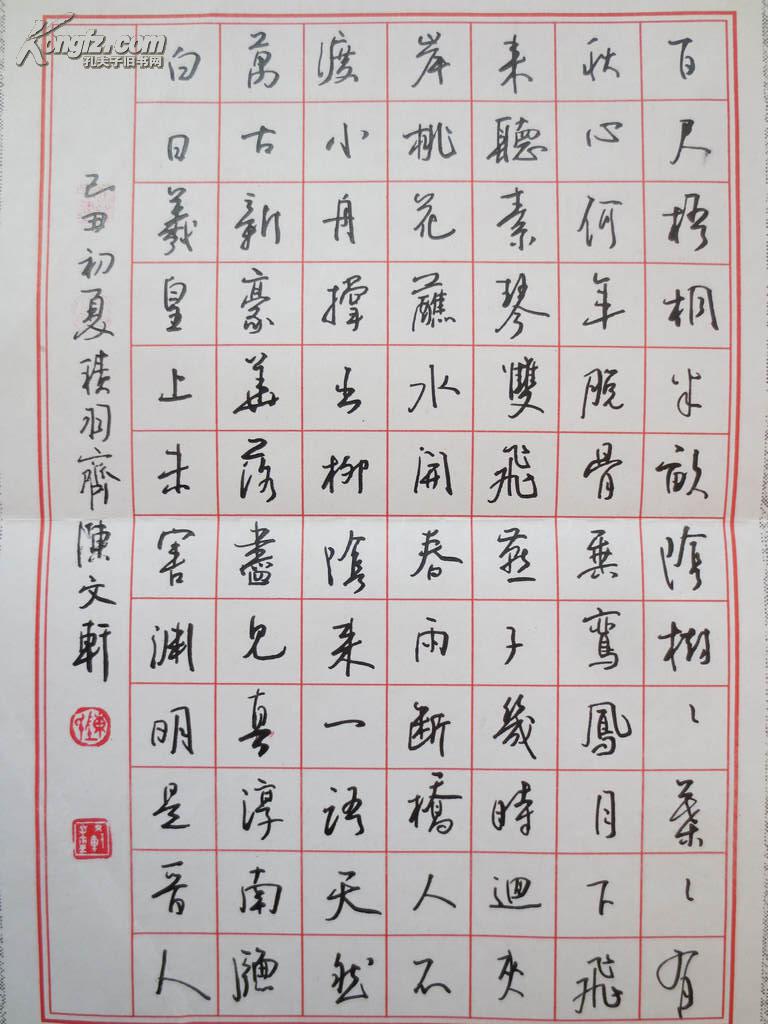 百尺梧桐半畝陰樹〻葉〻有
秋心何年脫骨乘鸞鳳月下飛
来聽素琴雙飛燕子幾時迴夾
岸桃花蘸水開春雨斷橋人不
渡小舟撐出柳陰来一語天然
萬古新豪華落盡見真淳南牕
白日羲皇上未害淵明是晉人
己丑初夏積羽齋陳文軒
Kongfz.com
孔夫子旧书网